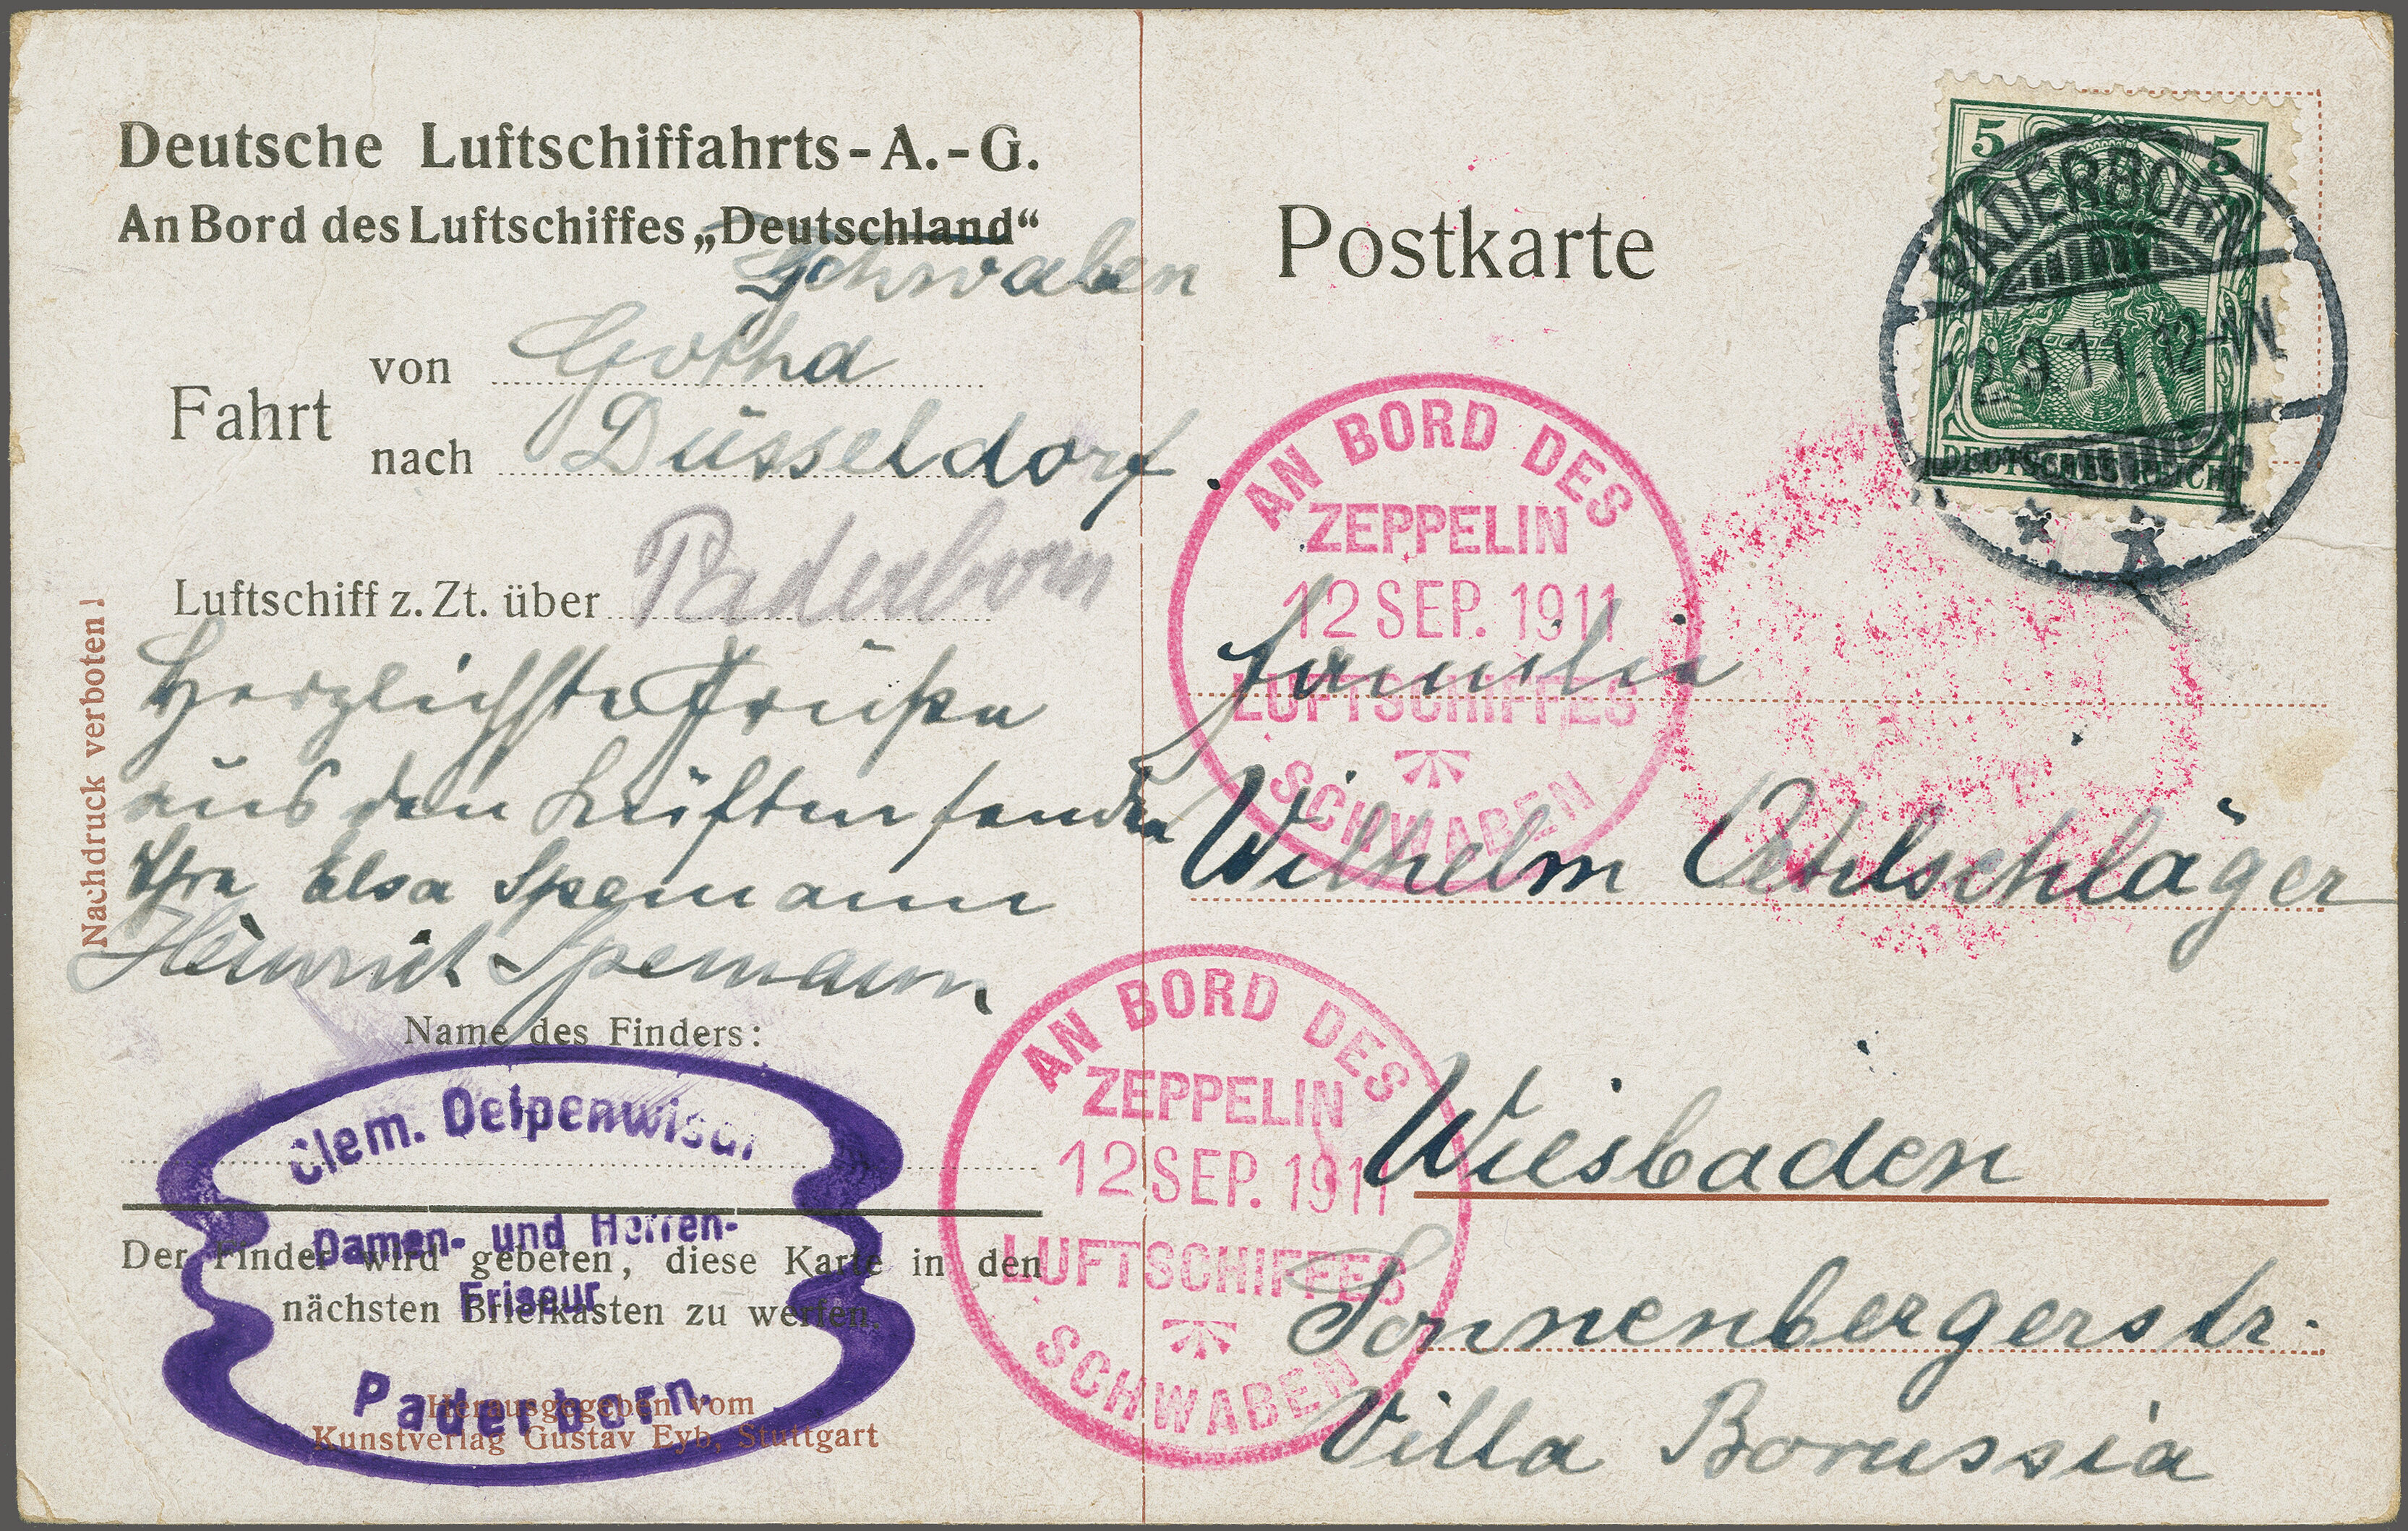 Deutsche Luftschiffahrts-A.-G.
An Bord des Luftschiffes „Deutschland“
Schwaben
Fahrt
von Gotha
nach Düsseldorf.
Luftschiff z. Zt. über Paderborn
Herzlichste Grüße
aus den Lüften senden
Ihre Elsa Spemann
Heinrich Spemann
Name des Finders:
Clem. Delpenwisch
Damen- und Herren-
Friseur
Paderborn.
Der Finder wird gebeten, diese Karte in den
nächsten Briefkasten zu werfen.
Herausgegeben vom
Kunstverlag Gustav Eyb, Stuttgart
Nachdruck verboten!
Postkarte
5 5
DEUTSCHES REICH
PADERBORN
12 9 11 12-1N
AN BORD DES
ZEPPELIN
12 SEP. 1911
LUFTSCHIFFES
SCHWABEN
Familie
Wilhelm Oehlschläger
AN BORD DES
ZEPPELIN
12 SEP. 1911
LUFTSCHIFFES
SCHWABEN
Wiesbaden
Sonnenbergerstr.
Villa Borussia